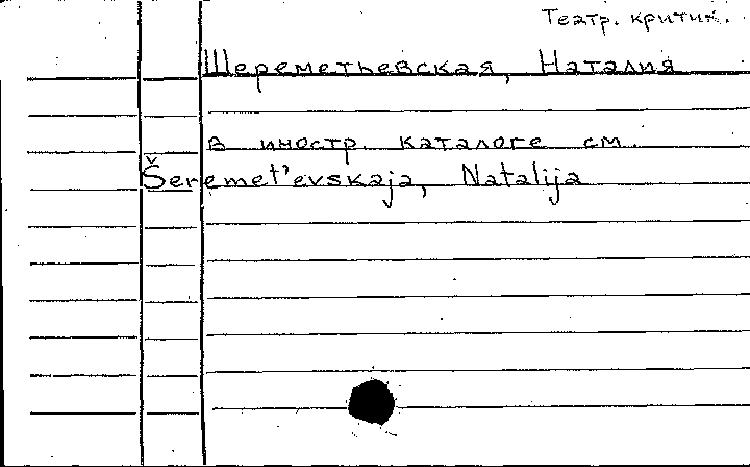 Театр. критик.
Шереметьевская, Наталия
в иностр. каталоге см.
Šeremet'evskaja, Natalija